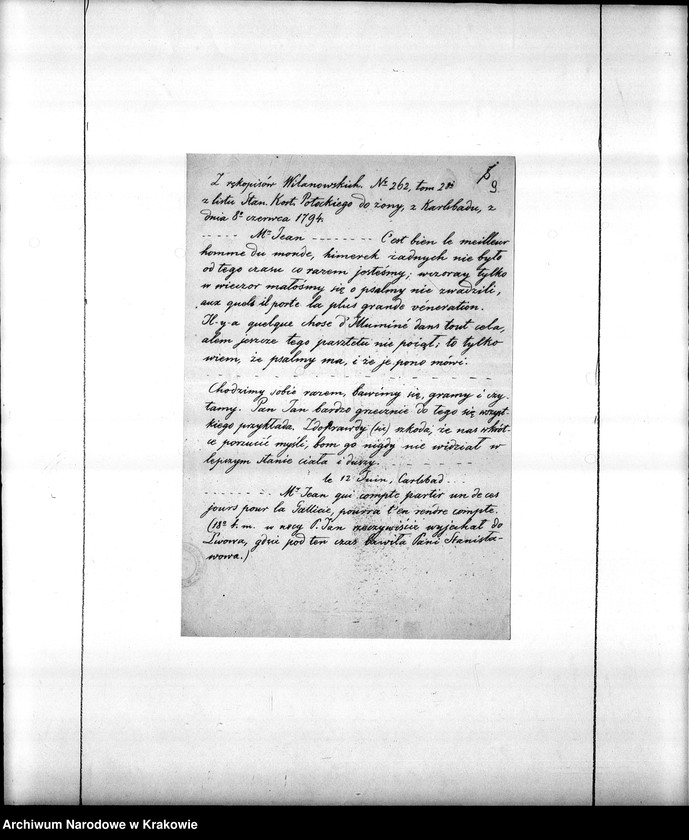 9
Z rękopisów Wilanowskich. No 262, tom 2gi
z listu Stan. Kost. Potockiego do żony, z Karlsbadu, z
dnia 8o czerwca 1794.
- - - - - Mr Jean - - - - - - - - C'est bien le meilleur
homme du monde, kimerek żadnych nie było
od tego czasu co razem jesteśmy; wczoray tylko
w wieczor małośmy się o psalmy nie zwadzili,
aux quels il porte la plus grande véneration.
Il-y-a quelque chose d'Illuminé dans tout cela,
alem jeszcze tego pasztetu nie począł; to tylko
wiem, że psalmy ma, i że je pono mówi.
Chodzimy sobie razem, bawimy się, gramy i czy-
tamy. Pan Jan bardzo grzecznie do tego się wszyst-
kiego przykłada. Zdoprawdy (sic) szkoda, że nas wkrót-
ce porzucić myśli, bom go nigdy nie widział w
lepszym stanie ciała i duszy. - - - - - - -
le 12 Juin, Carlsbad - - -
- - - - - - - Mr Jean qui compte partir un de ces
jours pour la Gallicie, pourra t'en rendre compte.
(18o t. m. w nocy P. Jan rzeczywiście wyjechał do
Lwowa, gdzie pod ten czas bawiła Pani Stanisła-
wowa.)
Archiwum Narodowe w Krakowie